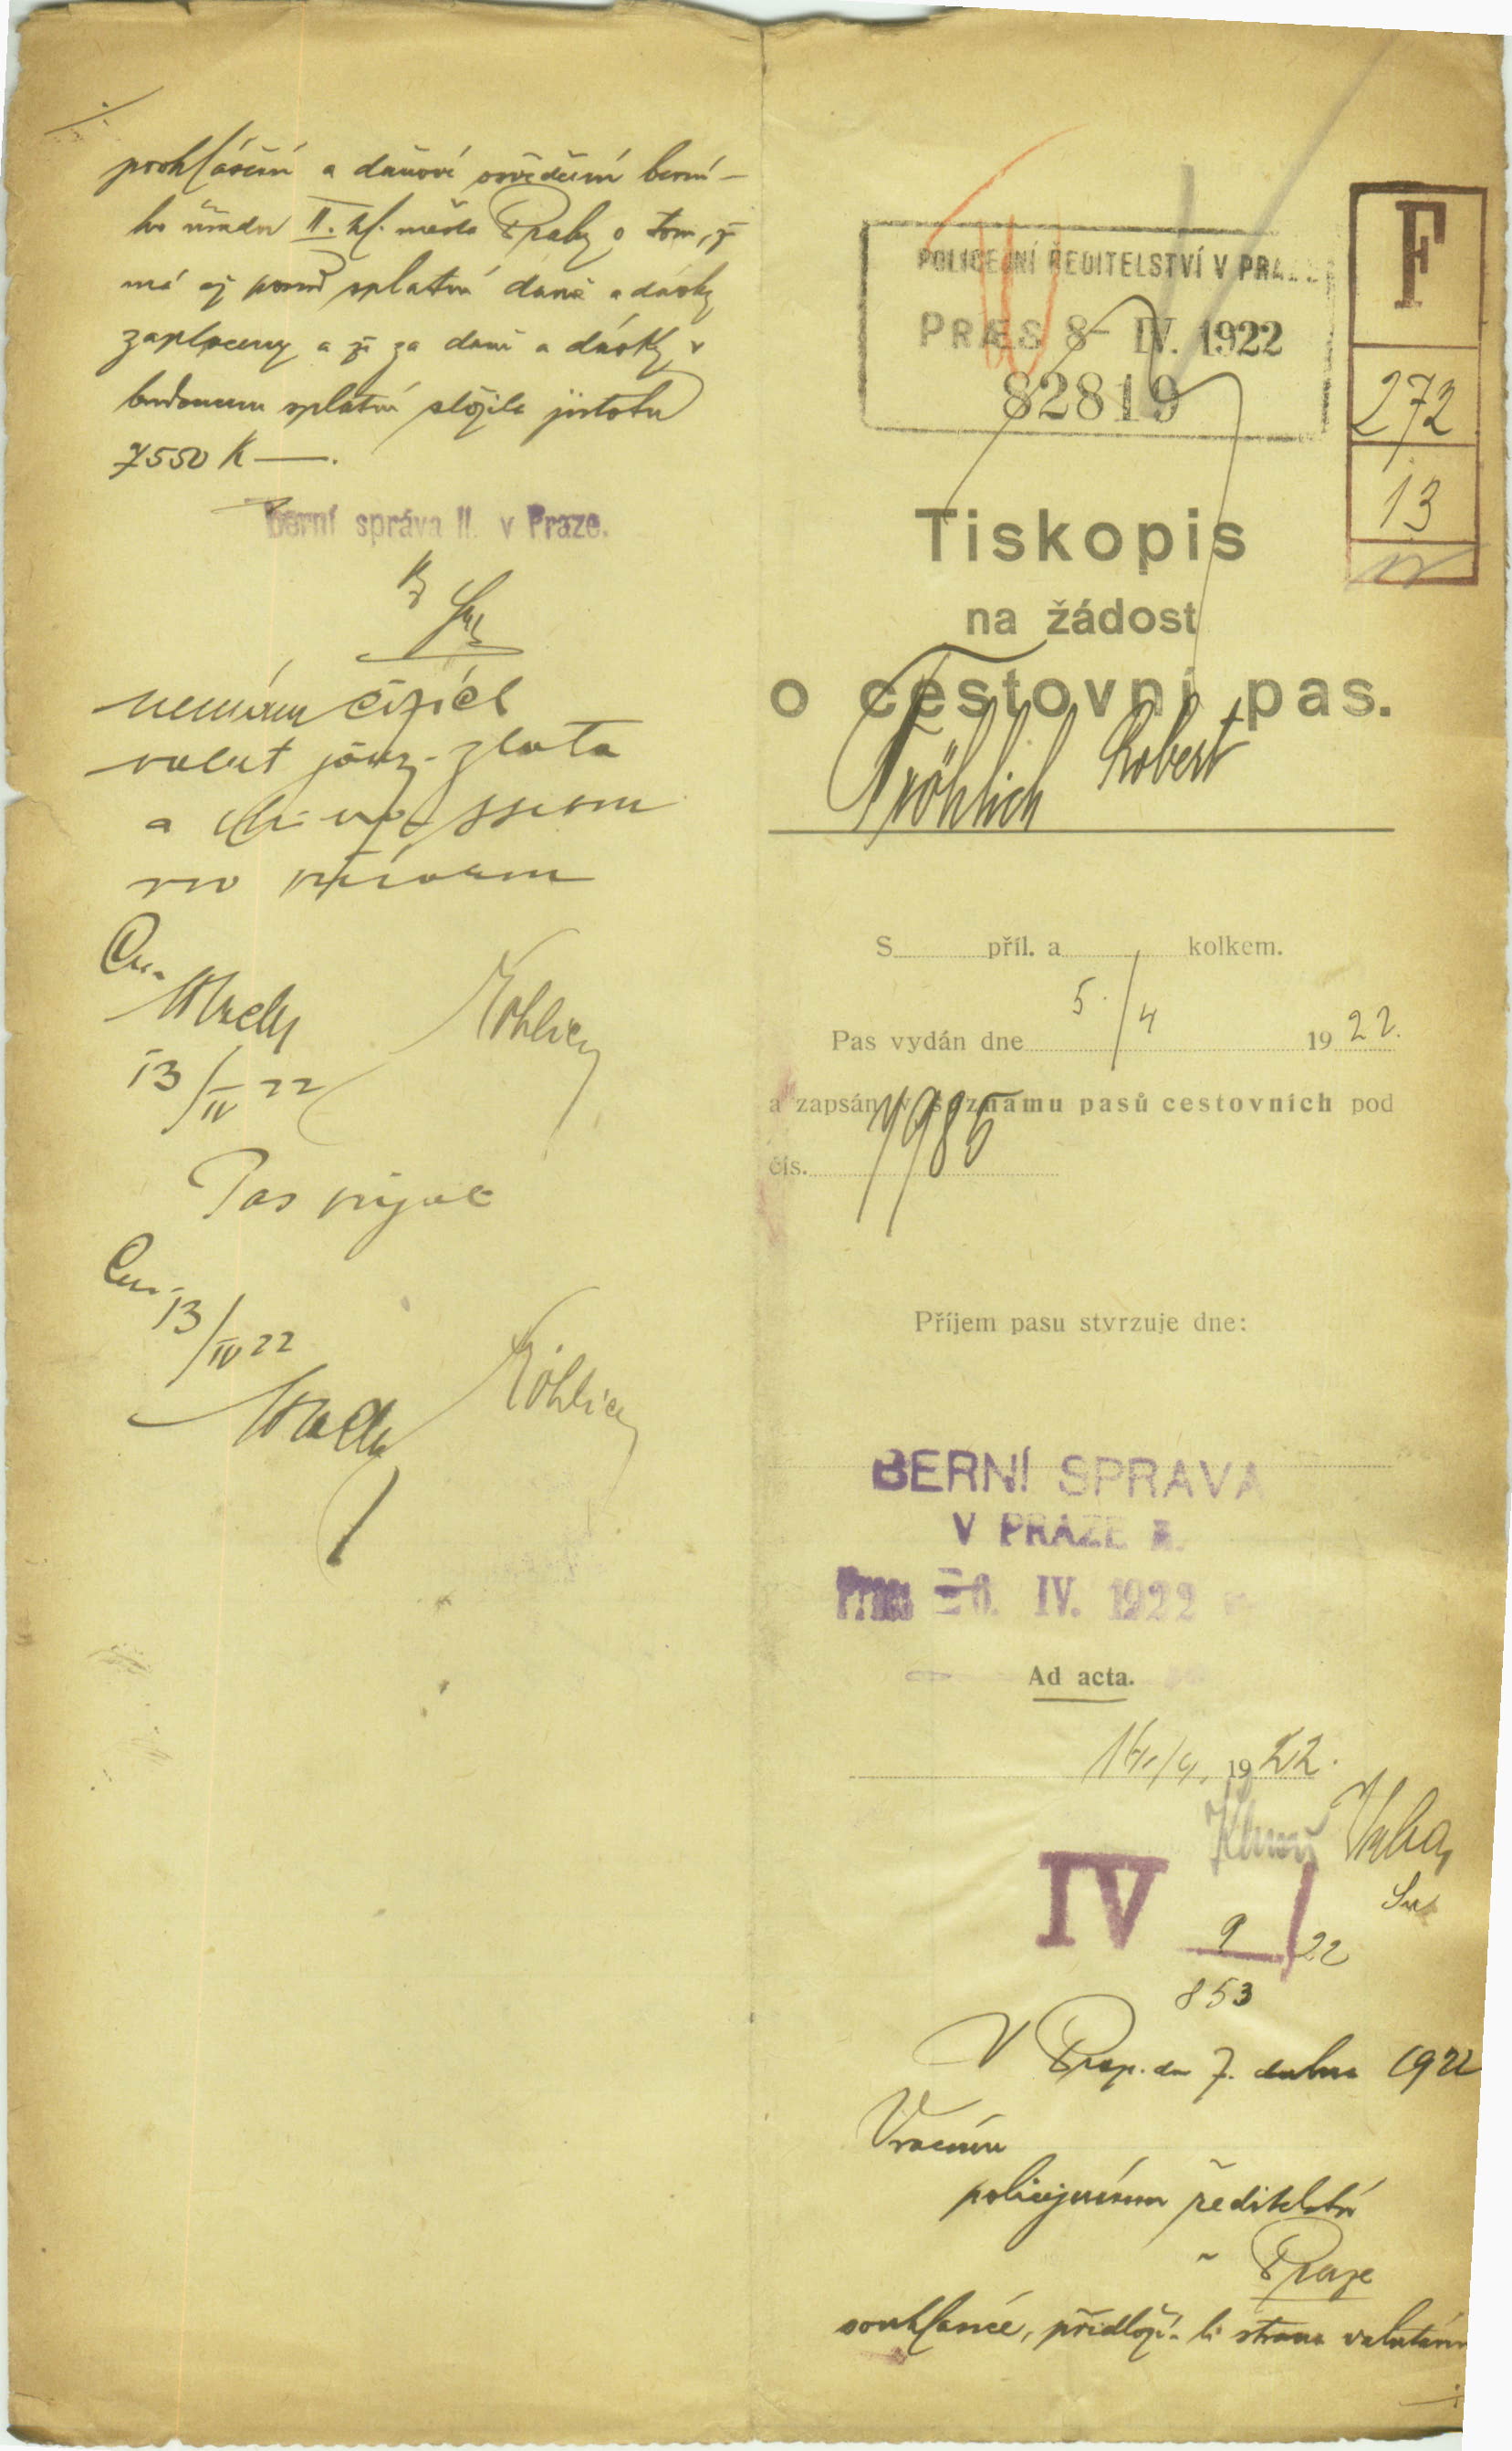 prohlášení a daňové osvědčení berní-
ho úřadu II. hl. města Prahy o tom, že
má splatné daně a dávky
zaplaceny a že za daně a dávky v
budoucnu splatné složila jistotu
7550 K —.
Berní správa II. v Praze.
nemám cizích
valut zlata
a
Pas přijal
13/IV 22
Fröhlich
13/IV 22
Fröhlich
POLICEJNÍ ŘEDITELSTVÍ V PRAZE
PRÆS 8- IV. 1922
82819
F
272
13
Tiskopis
na žádost
o cestovní pas.
Fröhlich Robert
S příl. a kolkem.
Pas vydán dne 5./4 1922.
a zapsán v seznamu pasů cestovních pod
čís. 1985
Příjem pasu stvrzuje dne:
BERNÍ SPRÁVA
V PRAZE
Præs IV. 1922
Ad acta.
14./4. 1922.
IV 9/22
853
V Praze dne 7. dubna 1922
Vráceno
policejnímu ředitelství
v Praze
souhlasíc, předloží-li strana valutární